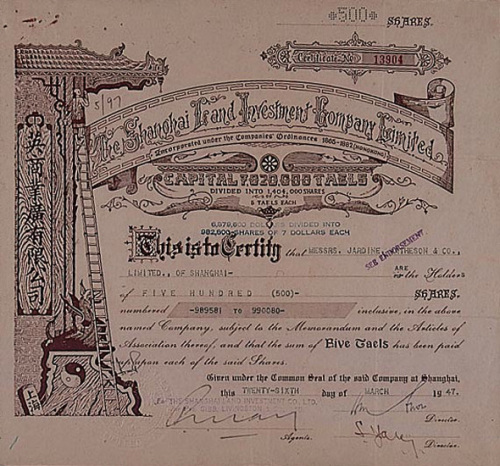 500 SHARES.
Certificate No 13904
5/97
The Shanghai Land Investment Company Limited.
Incorporated under the Companies' Ordinances 1865-1887 (Hongkong)
CAPITAL 7,020,000 TAELS
DIVIDED INTO 1,404,000 SHARES
5 TAELS EACH
DIVIDED INTO
SHARES OF 7 DOLLARS EACH
This is to Certify that MESSRS. JARDINE, MATHESON & CO.,
SEE ENDORSEMENT
LIMITED., OF SHANGHAI- ARE the Holders
of FIVE HUNDRED (500)- SHARES.
numbered -989581 TO 990080- inclusive, in the above
named Company, subject to the Memorandum and the Articles of
Association thereof, and that the sum of Five Taels has been paid
upon each of the said Shares.
Given under the Common Seal of the said Company at Shanghai,
this TWENTY-SIXTH day of MARCH 1947.
THE SHANGHAI LAND INVESTMENT CO., LTD.
Director.
Agents.
Director.
英商業廣有限公司
上海